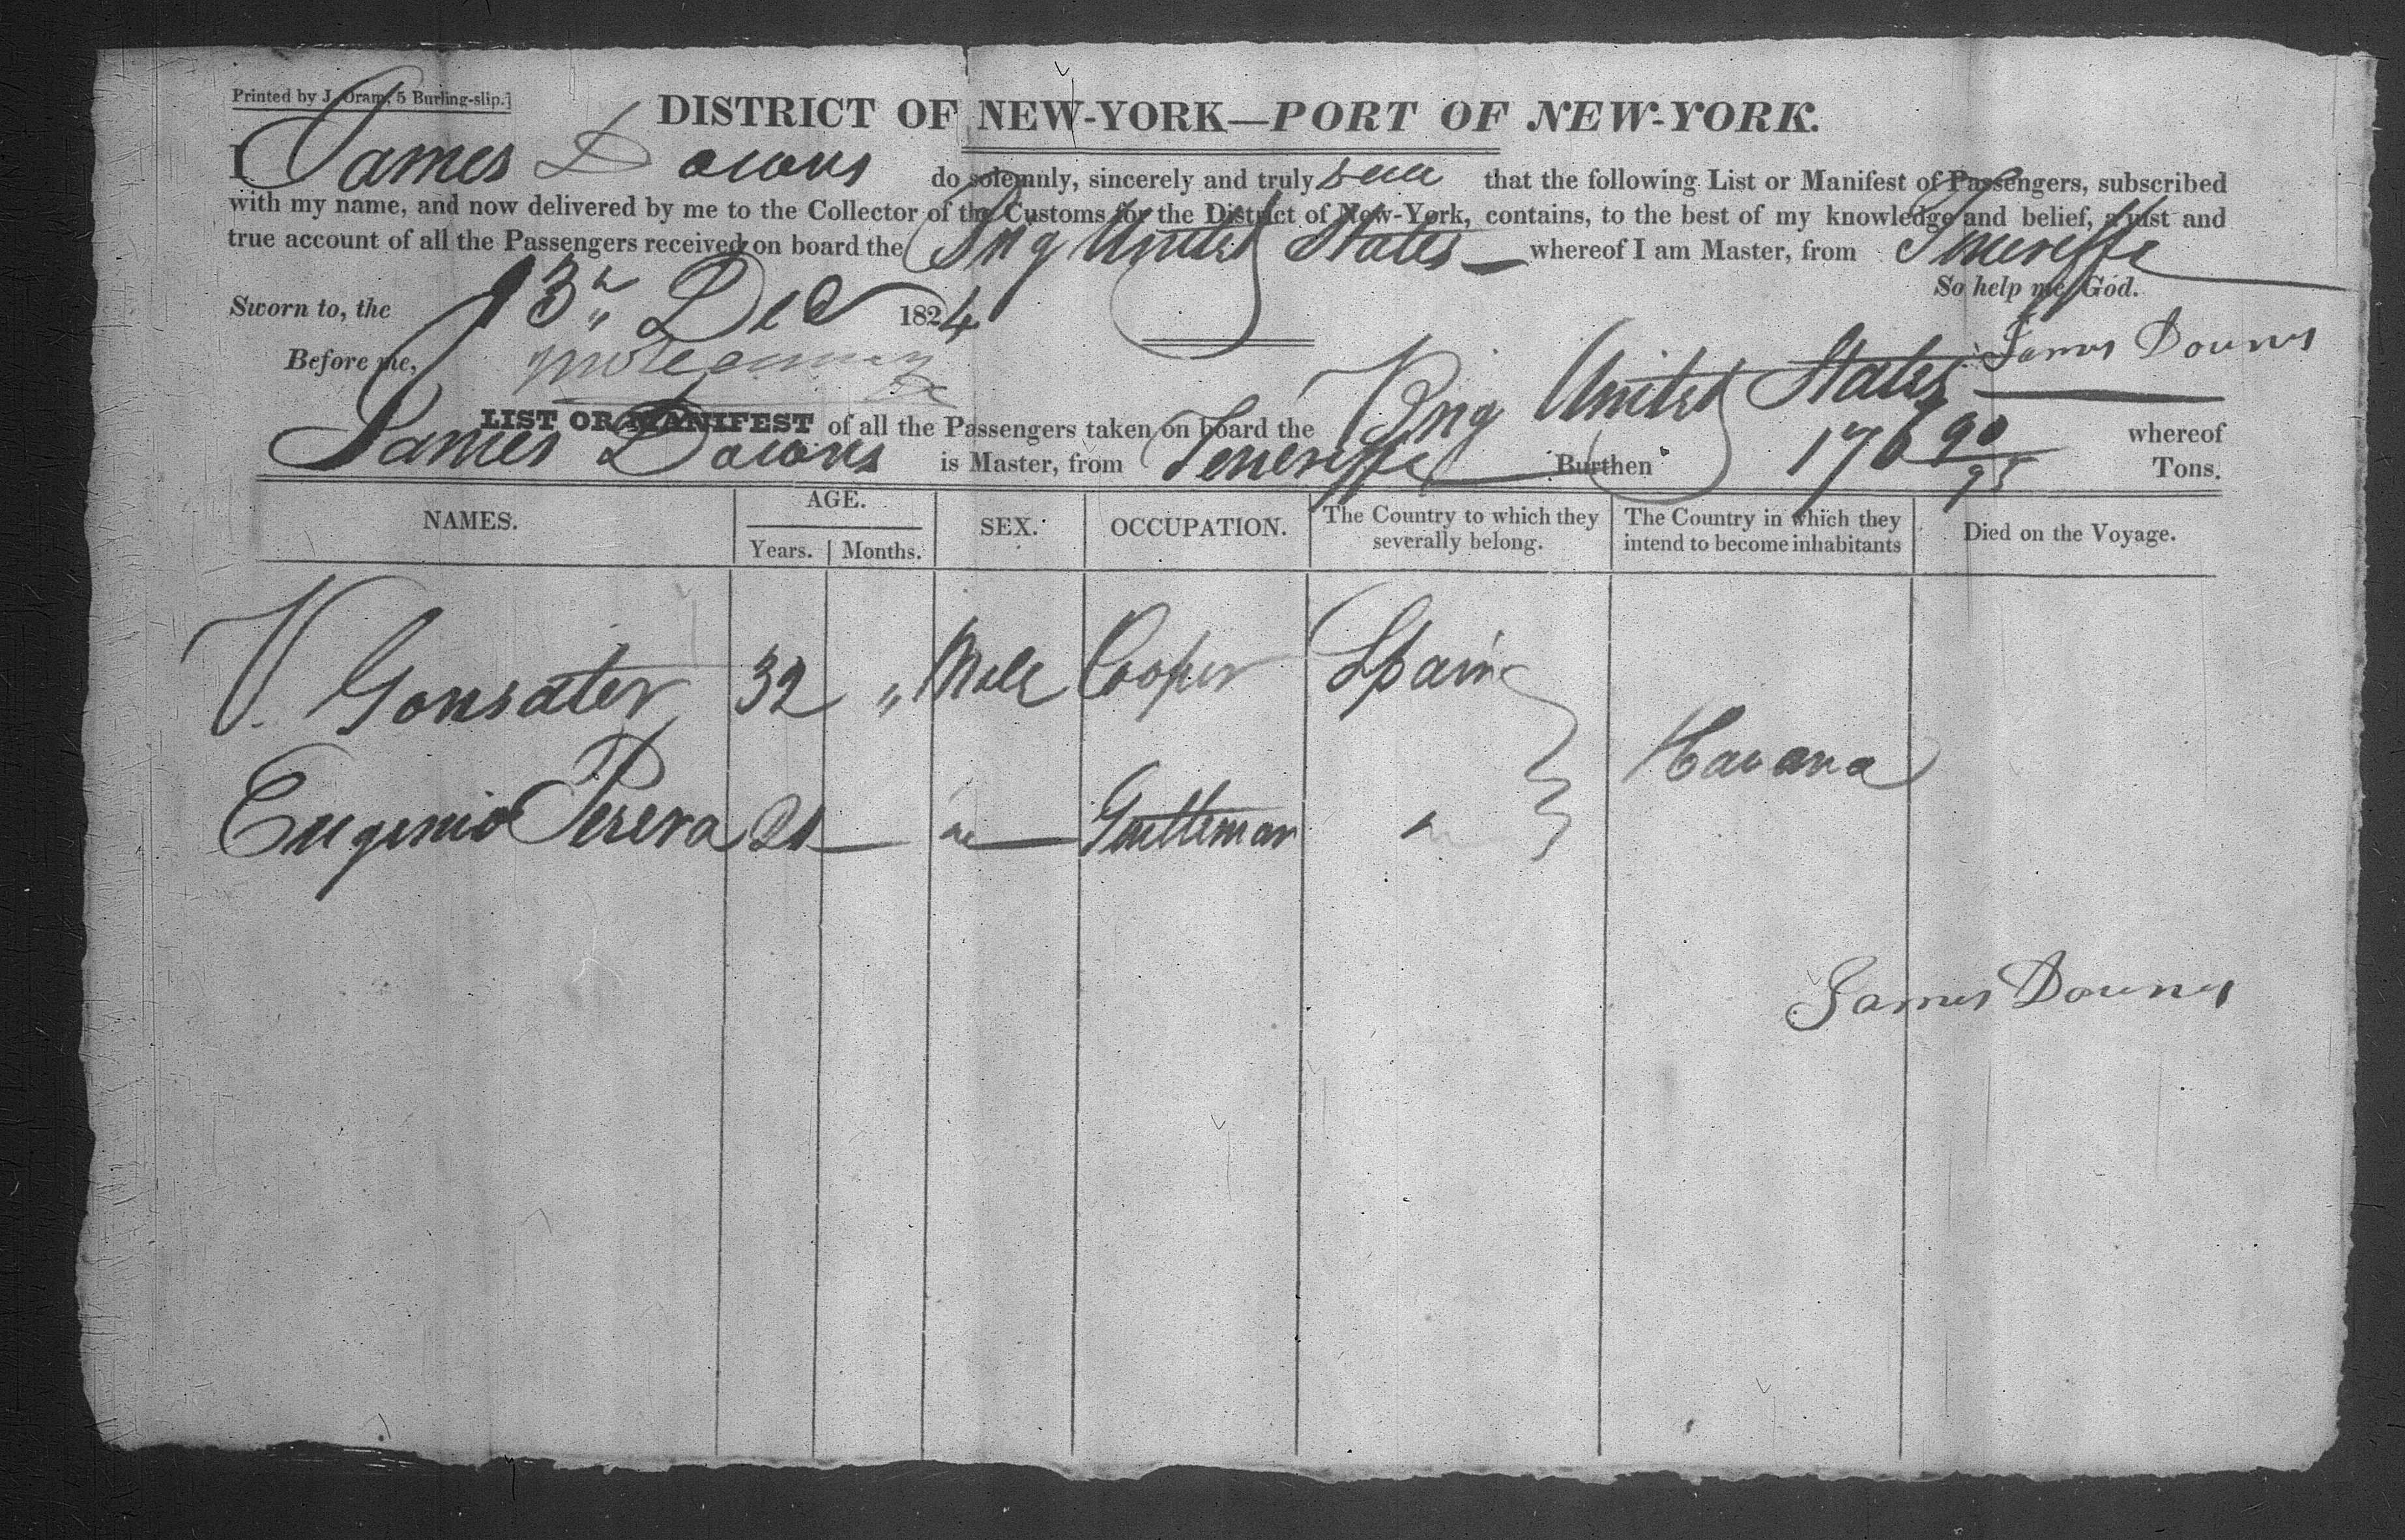 Printed by J. Oram, 5 Burling-slip.]
DISTRICT OF NEW-YORK—PORT OF NEW-YORK.
I James Downs do solemnly, sincerely and truly that the following List or Manifest of Passengers, subscribed
with my name, and now delivered by me to the Collector of the Customs for the District of New-York, contains, to the best of my knowledge and belief, a just and
true account of all the Passengers received on board the Brig United States whereof I am Master, from Teneriffe
So help me God.
Sworn to, the 13th Dec 1824
James Downs
Before me,
LIST OR MANIFEST of all the Passengers taken on board the Brig United States whereof
James Downs is Master, from Teneriffe Burthen 176 90/95 Tons.
NAMES. AGE. Years. Months. SEX. OCCUPATION. The Country to which they severally belong. The Country in which they intend to become inhabitants Died on the Voyage.
V. Gonsater 32 " Male Cooper Spain
Havana
Eugenio Perera 21 — " — Gentleman "
James Downs